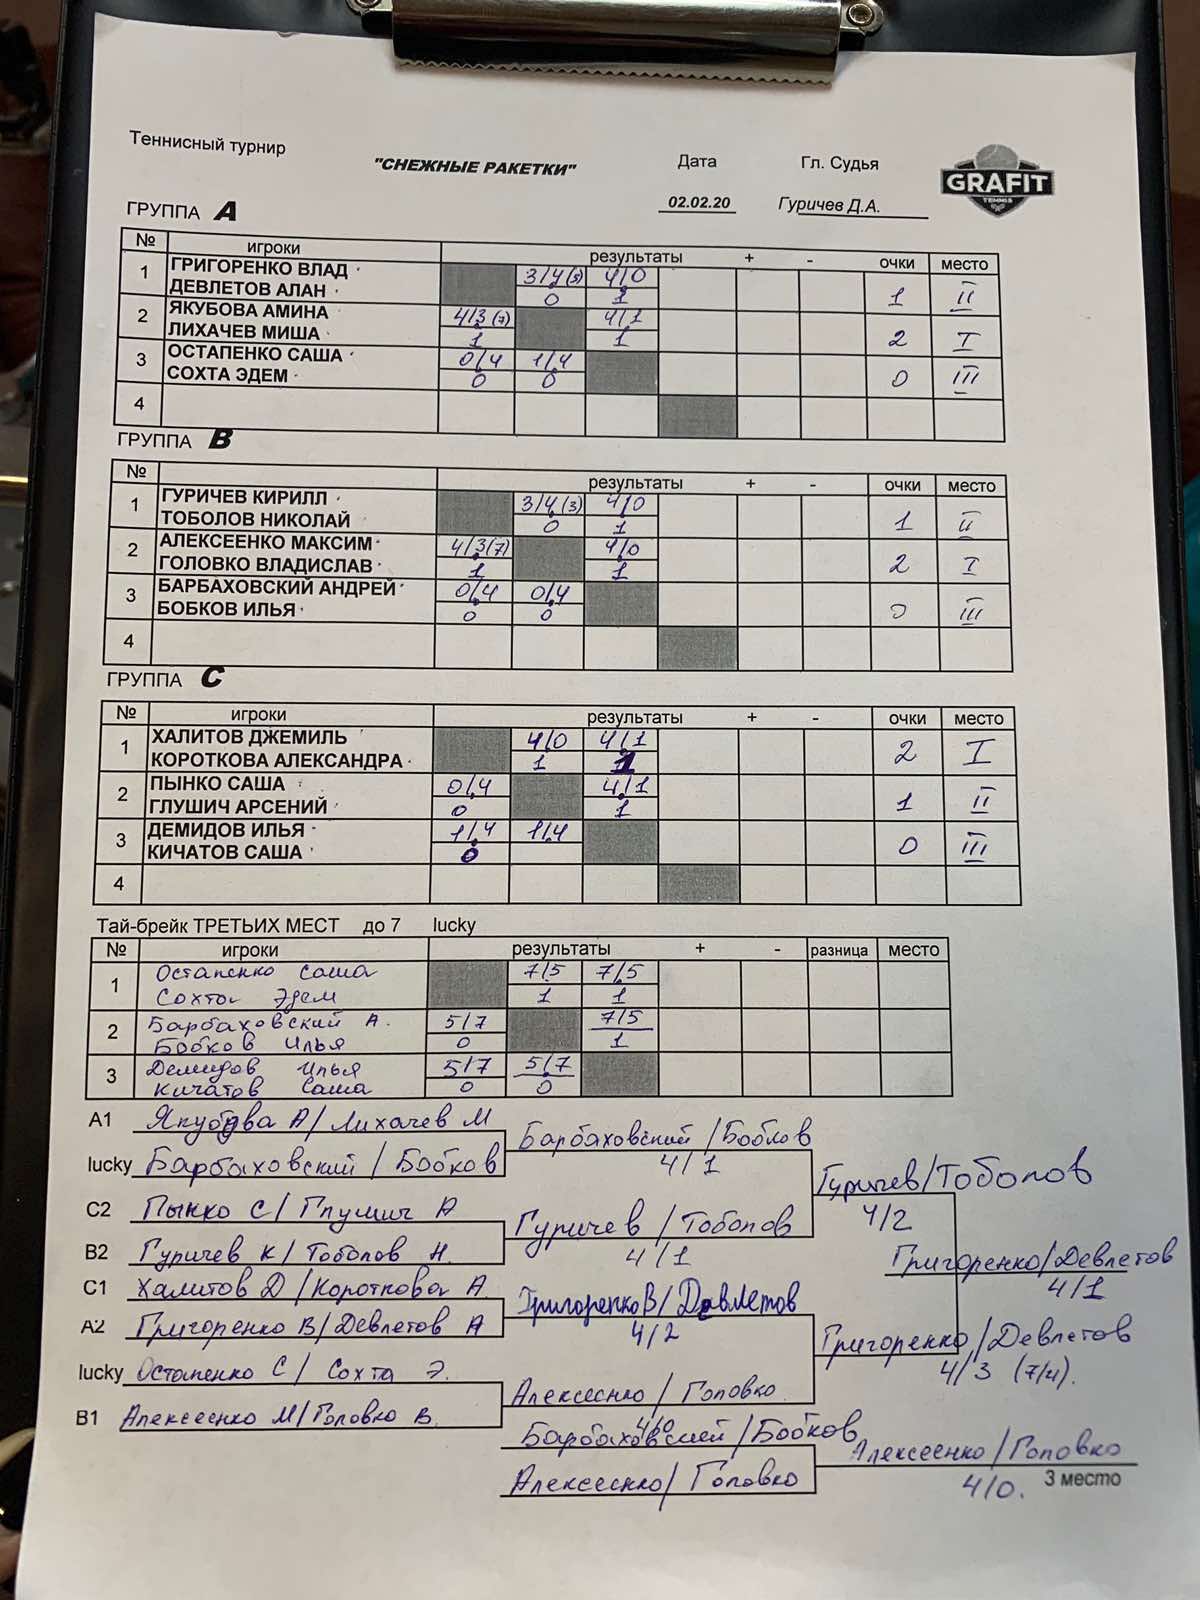 Теннисный турнир
"СНЕЖНЫЕ РАКЕТКИ"
Дата
Гл. Судья
GRAFIT
TENNIS
02.02.20
Гуричев Д.А.
ГРУППА A
№ игроки результаты + - очки место
1 ГРИГОРЕНКО ВЛАД 3/4(5) 4/0
ДЕВЛЕТОВ АЛАН 0 1 1 II
2 ЯКУБОВА АМИНА 4/3(7) 4/1
ЛИХАЧЕВ МИША 1 1 2 I
3 ОСТАПЕНКО САША 0/4 1/4
СОХТА ЭДЕМ 0 0 0 III
4
ГРУППА B
№ результаты + - очки место
1 ГУРИЧЕВ КИРИЛЛ 3/4(3) 4/0
ТОБОЛОВ НИКОЛАЙ 0 1 1 II
2 АЛЕКСЕЕНКО МАКСИМ 4/3(7) 4/0
ГОЛОВКО ВЛАДИСЛАВ 1 1 2 I
3 БАРБАХОВСКИЙ АНДРЕЙ 0/4 0/4
БОБКОВ ИЛЬЯ 0 0 0 III
4
ГРУППА C
№ игроки результаты + - очки место
1 ХАЛИТОВ ДЖЕМИЛЬ 4/0 4/1
КОРОТКОВА АЛЕКСАНДРА 1 1 2 I
2 ПЫНКО САША 0/4 4/1
ГЛУШИЧ АРСЕНИЙ 0 1 1 II
3 ДЕМИДОВ ИЛЬЯ 1/4 1/4
КИЧАТОВ САША 0 0 III
4
Тай-брейк ТРЕТЬИХ МЕСТ до 7 lucky
№ игроки результаты + - разница место
1 Остапенко Саша 7/5 7/5
Сохта Эдем 1 1
2 Барбаховский А. 5/7 7/5
Бобков Илья 0 1
3 Демидов Илья 5/7 5/7
Кичатов Саша 0 0
A1 Якубова А/Лихачев М
Барбаховский/Бобков
4/1
lucky Барбаховский/Бобков
Гуричев/Тоболов
4/2
C2 Пынко С/Глушич А
Гуричев/Тоболов
4/1
B2 Гуричев К/Тоболов Н.
Григоренко/Девлетов
4/1
C1 Халитов Д/Короткова А
Григоренко В/Девлетов
4/2
A2 Григоренко В/Девлетов А
Григоренко/Девлетов
4/3 (7/4).
lucky Остапенко С/Сохта Э.
Алексеенко/Головко
4/0
B1 Алексеенко М/Головко В.
Барбаховский/Бобков
Алексеенко/Головко
4/0. 3 место
Алексеенко/Головко